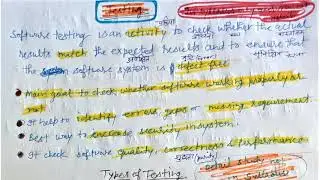 Testing
Software testing is an activity to check whether the actual
results match the expected results and to ensure that
the software system is defect free.
Main goal to check whether software working properly or
not
It help to identify errors, gaps or missing requirement.
Best way to encrease security in system.
It check software quality, correctness & performance
(purity)
Types of Testing
Detail study